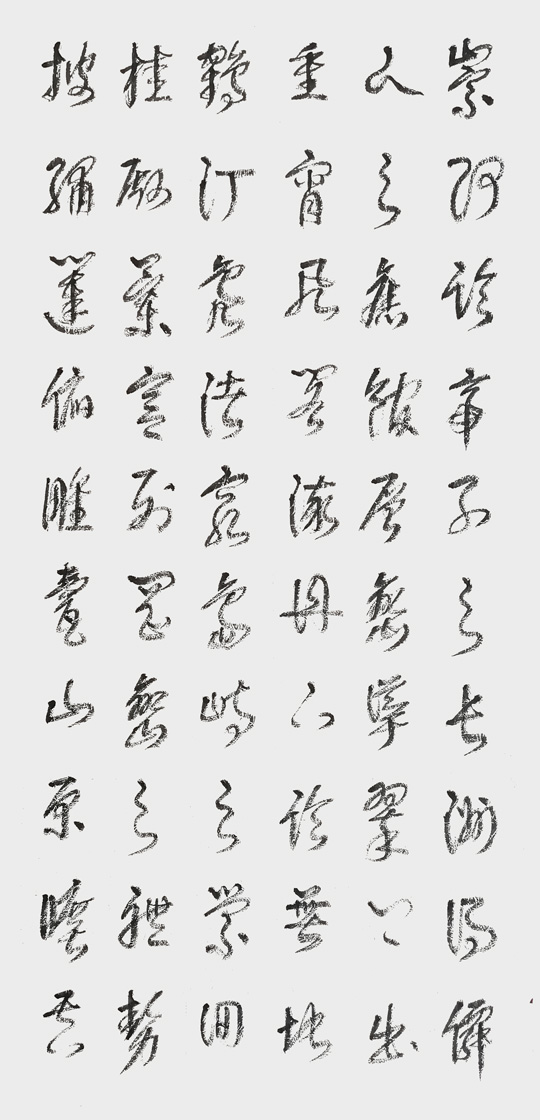 崇阿臨帝子之長洲得僊
人之舊館層巒聳翠上出
重霄飛閣流丹下臨無地
鶴汀鳧渚窮島嶼之縈囘
桂殿蘭宮列岡巒之體勢
披繡闥俯雕甍山原曠其